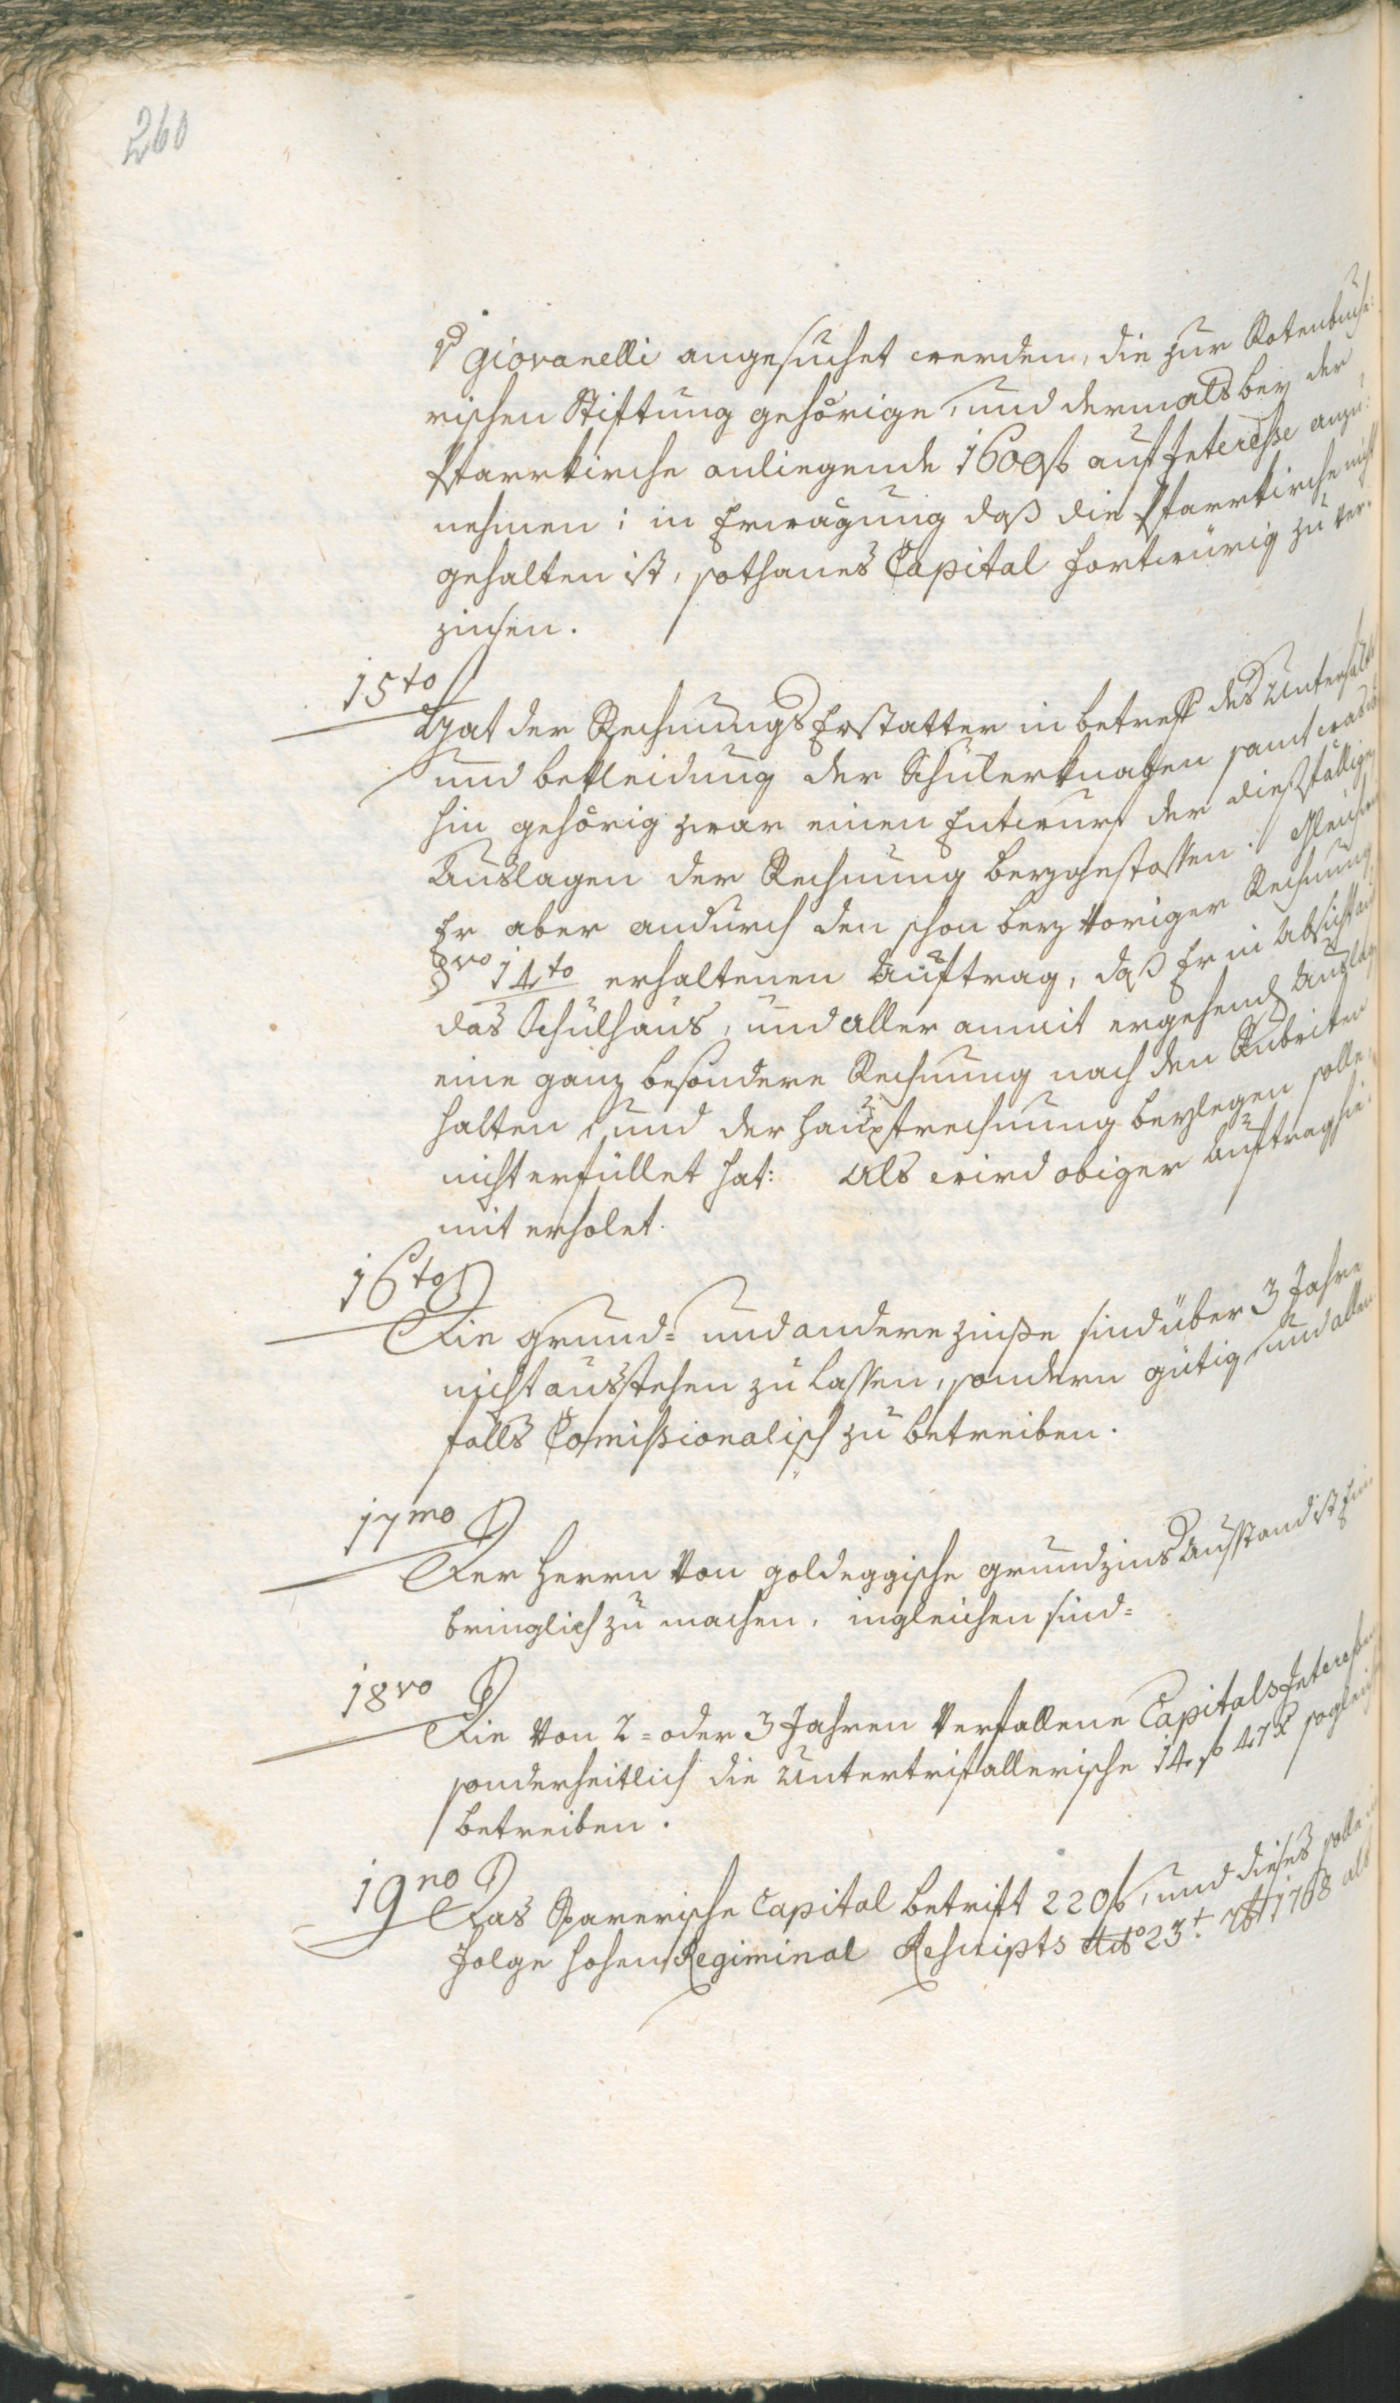 260
v Giovanelli angesuchet werden, die zur Rotenbuche=
rischen Stiftung gehörige, und dermals bey der
Pfarrkirche anliegende 1600 f auf Interesse anzu=
nehmen: in Erwägung daß die Pfarrkirche nicht
gehalten ist, sothanes Capital fortwürig zu ver=
zinsen.
15to
Hat der Rechnungs Erstatter in betreff des Unterhalts
und bekleidung der Schülerknaben samt was da
hin gehörig zwar einen Entwurf der dießfälligen
Auslagen der Rechnung beygestossen. Gleichwie
Er aber andurch den schon bey voriger Rechnung
§vo 14to erhaltenen Auftrag, daß Er in Absicht auf
das Schulhaus, und aller anmit ergehend Auslag
eine ganz besondere Rechnung nach den Rubriken
halten, und der Hauptrechnung beylegen solle,
nicht erfüllet hat: Als wird obiger Auftrag hie=
mit erholet.
16to
Die Grund= und andere Zinße sind über 3 Jahre
nicht ausstehen zu lassen, sondern gütig und allen
falls Comissionalisch zu betreiben.
17mo
Der Herrn von Goldeggische Grundzins Ausstand ist Ein
bringlich zu machen, ingleichen sind=
18vo
Die von 2= oder 3 Jahren verfallene Capitals Interessen
sonderheitlich die Untertrifallerische 14 f 47 x sogleich
betreiben.
19no
Das Sparerische Capital betrift 220 f, und dieses solle in
Folge hohen Regiminal Rescripts ddo 23t 1768 als